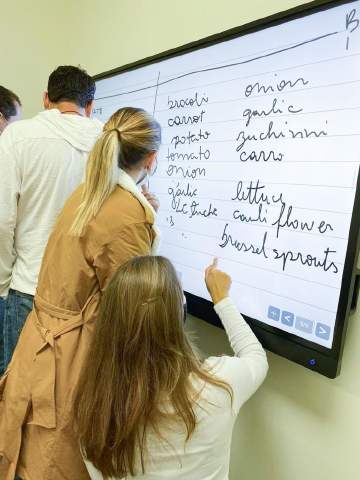 B
brocoli
carrot
potato
tomato
onion
garlic
onion
garlic
zuchinni
carro
lettucy
cauliflower
brussel sprouts